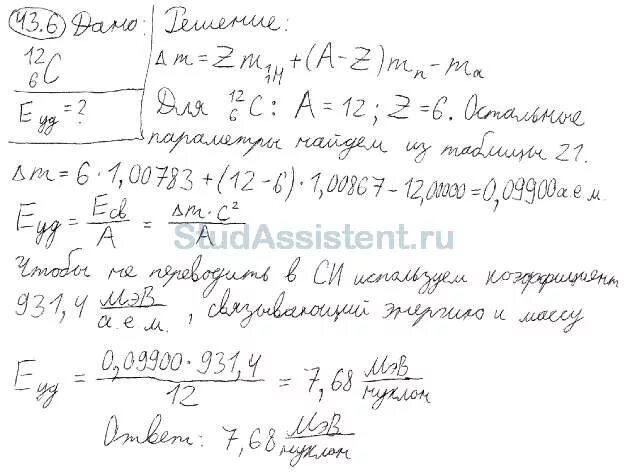 43.6 Дано: Решение:
¹²₆C
E уд = ?
Δm = Z m ₁¹H + (A - Z) m n - m a
Для ¹²₆C: A = 12; Z = 6. Остальные
параметры найдем из таблицы 21.
Δm = 6 · 1,00783 + (12 - 6) · 1,00867 - 12,00000 = 0,09900 а.е.м.
E уд = E св / A = Δm · c² / A
StudAssistent.ru
Чтобы не переводить в СИ используем коэффициент
931,4 МэВ / а.е.м., связывающий энергию и массу
E уд = 0,09900 · 931,4 / 12 = 7,68 МэВ / нуклон
Ответ: 7,68 МэВ / нуклон